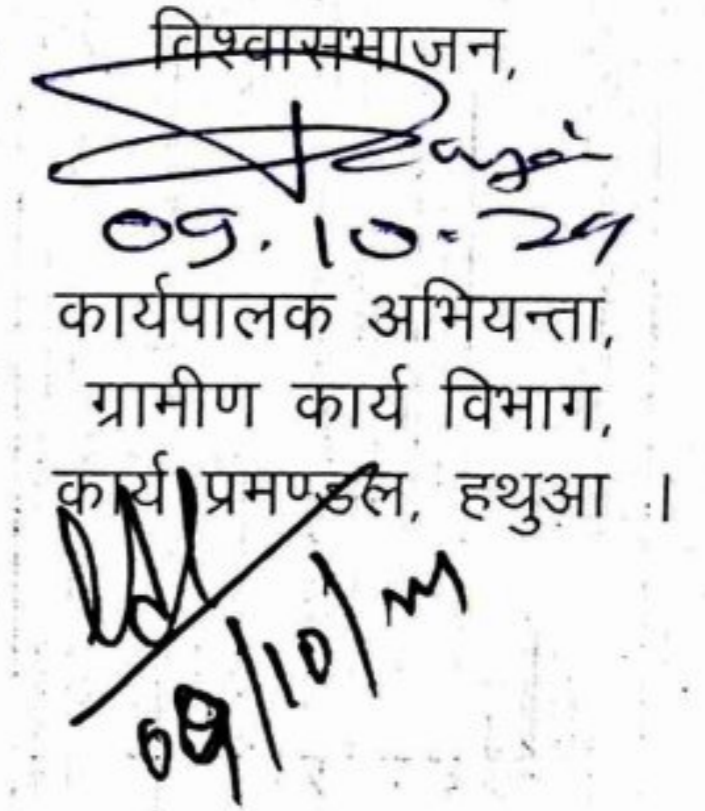 विश्वासभाजन,
09.10-24
कार्यपालक अभियन्ता,
ग्रामीण कार्य विभाग,
कार्य प्रमण्डल, हथुआ ।
09/10/